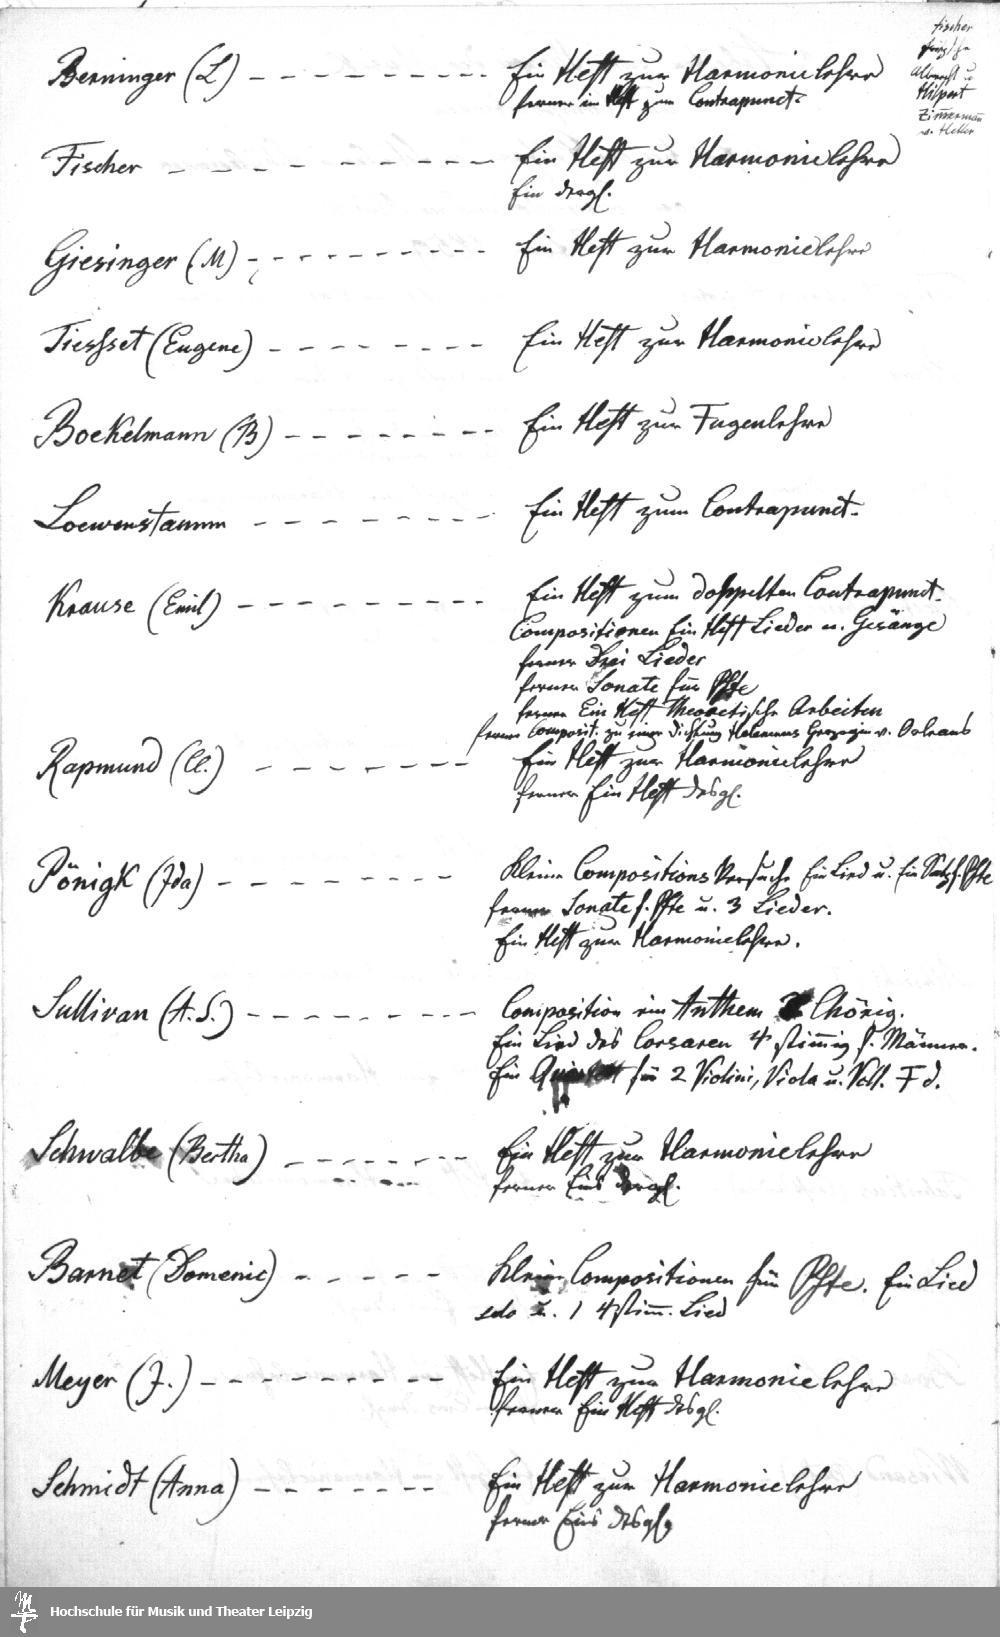 Fischer
Albrecht u
Hilpert
Zimmermann
v. Heller
Berninger (L) - - - - - - - - - Ein Heft zur Harmonielehre
ferner ein Heft zum Contrapunct.
Fischer - - - - - - - - - Ein Heft zur Harmonielehre
Ein dergl.
Giesinger (M) - - - - - - - - - Ein Heft zur Harmonielehre
Tiesset (Eugene) - - - - - - - Ein Heft zur Harmonielehre
Boekelmann (B) - - - - - - - - Ein Heft zur Fugenlehre
Loewenstamm - - - - - - - Ein Heft zum Contrapunct.
Krause (Emil) - - - - - - - - Ein Heft zum doppelten Contrapunct.
Compositionen Ein Heft Lieder u. Gesänge
ferner Drei Lieder
ferner Sonate für Pfte
ferner Ein Heft theoretische Arbeiten
ferner Composit. zu einer Dichtung Helenens Herzogin v. Orleans
Rapmund (Cl.) - - - - - - Ein Heft zur Harmonielehre
ferner Ein Heft desgl.
Pönigk (Ida) - - - - - - - Kleine Compositions Versuche Ein Lied u. Ein Satz f. Pfte
ferner Sonate f. Pfte u. 3 Lieder.
Ein Heft zur Harmonielehre.
Sullivan (A. S.) - - - - - - - Composition ein Anthem Chörig.
Ein Lied des Corsaren 4 stimmig f. Männer.
Ein für 2 Violini, Viola u. Vcll. F d.
Schwalbe (Bertha) - - - - - - - Ein Heft zur Harmonielehre
ferner Eins dergl.
Barnet (Domenic) - - - - - Kleine Compositionen für Pfte. Ein Lied
u. 1 4stimm. Lied
Meyer (J.) - - - - - - - - - Ein Heft zur Harmonielehre
ferner Ein Heft desgl.
Schmidt (Anna) - - - - - - - Ein Heft zur Harmonielehre
ferner Eins desgl.
Hochschule für Musik und Theater Leipzig